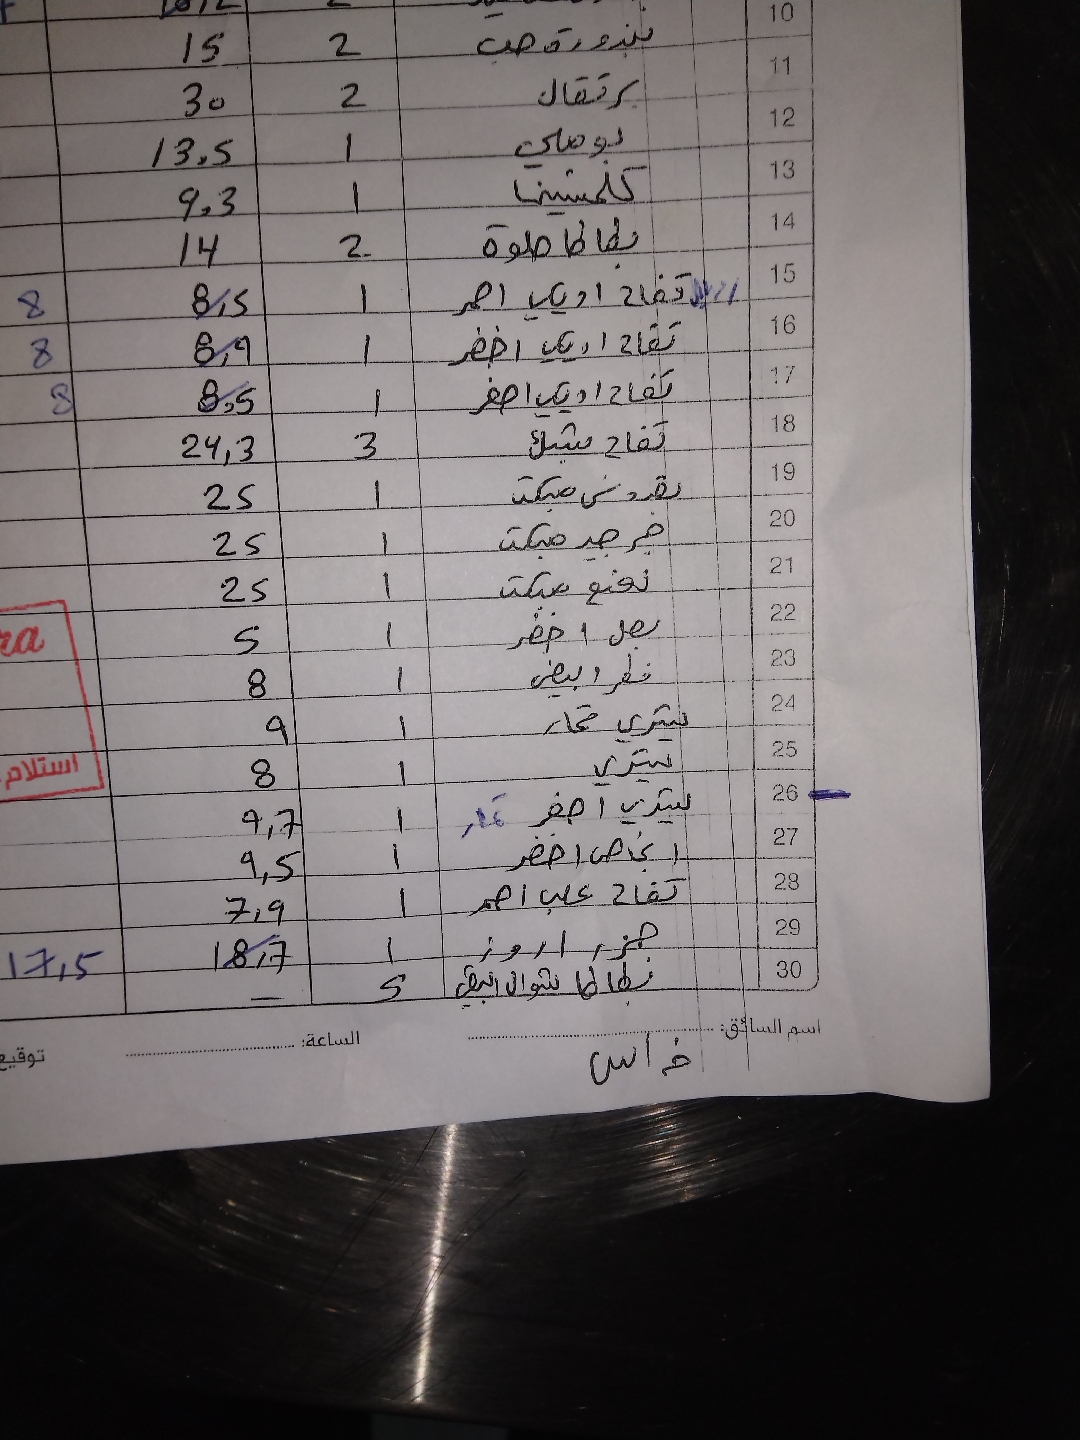 10
بندورة حب 2 15
11
برتقال 2 30
12
بوملي 1 13.5
13
كلمنتينا 1 9.3
14
بطاطا حلوة 2 14
15
تفاح احمر 1 8.5 8
16
تفاح اخضر 1 8.9 8
17
تفاح اصفر 1 8.5 8
18
تفاح 3 24,3
19
بقدونس مبكت 1 25
20
جرجير مبكت 1 25
21
نعنع مبكت 1 25
22
بصل اخضر 1 5
23
فطر ابيض 1 8
24
1 9
25
1 8
26
اصفر 1 9,7
27
انجاص اخضر 1 9,5
28
تفاح علب احمر 1 7,9
29
جزر اروز 1 18,7 17,5
30
بطاطا شوال 5 –
ra
استلام
اسم السائق: الساعة: توقيع
فراس